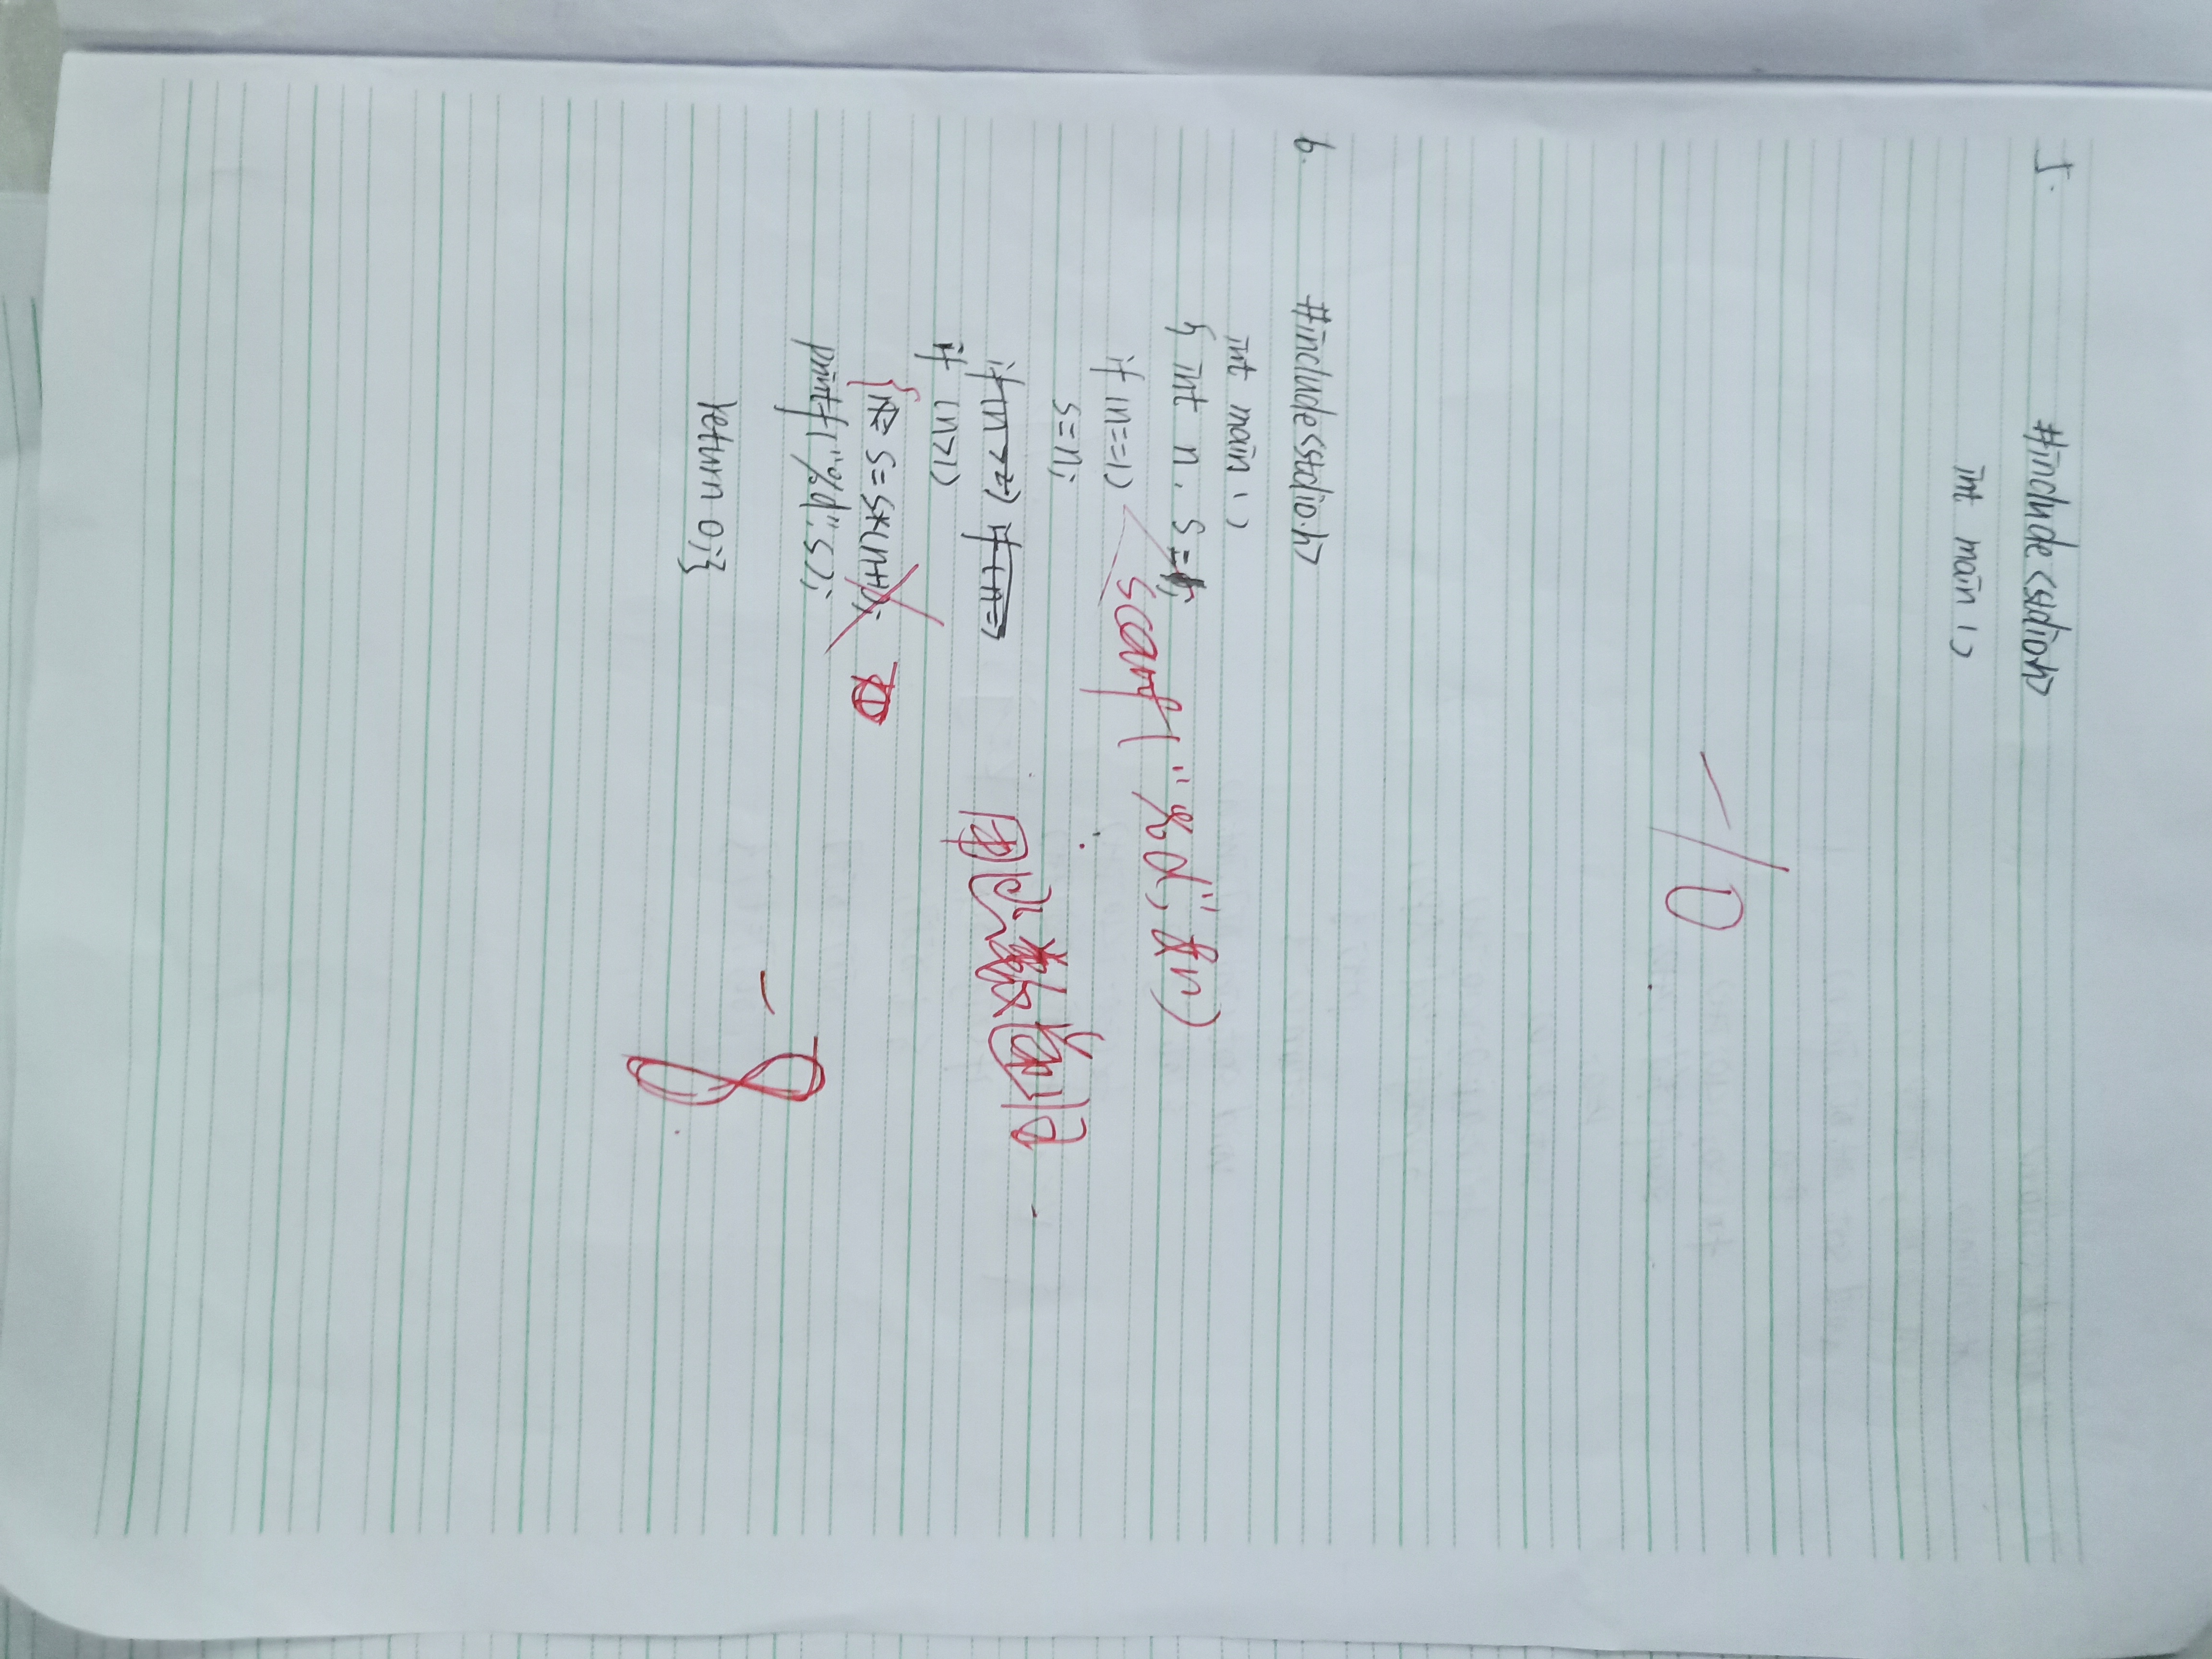 5.
#include<stdio.h>
int main()
-10
6.
#include<stdio.h>
int main()
{ int n, s=
scanf("%d",&n)
if(n==1)
s=n;
if(n>2) if(n=
if (n>1)
用函数递归
{ s=s*(n+1);
printf("%d",s);
-8
return 0;}